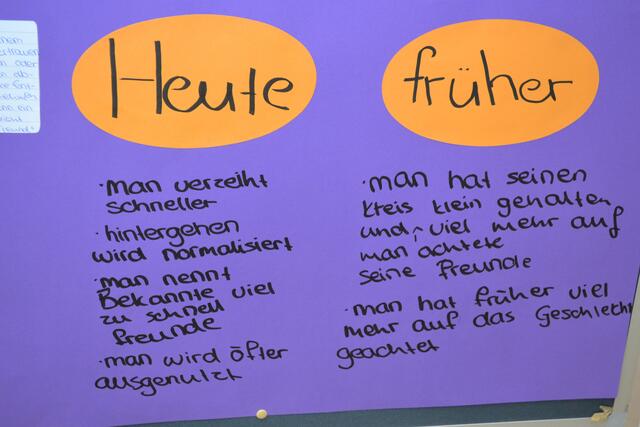 Heute
· man verzeiht
schneller
· hintergehen
wird normalisiert
· man nennt
Bekannte
zu schnell viel
freunde
· man wird öfter
ausgenutzt
früher
· man hat seinen
kreis klein gehalten
und ^ viel mehr auf
man achtete
seine freunde
· man hat früher viel
mehr auf das Geschlecht
geachtet